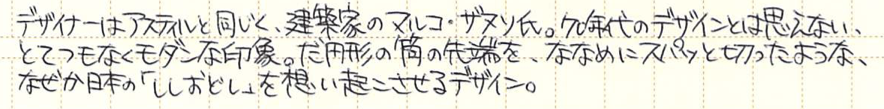 デザイナーはアスティルと同じく、建築家のマルコ・ザヌソ氏。70年代のデザインとは思えない、
とてつもなくモダンな印象。だ円形の筒の先端を、ななめにスパッと切ったような、
なぜか日本の「ししおどし」を想い起こさせるデザイン。